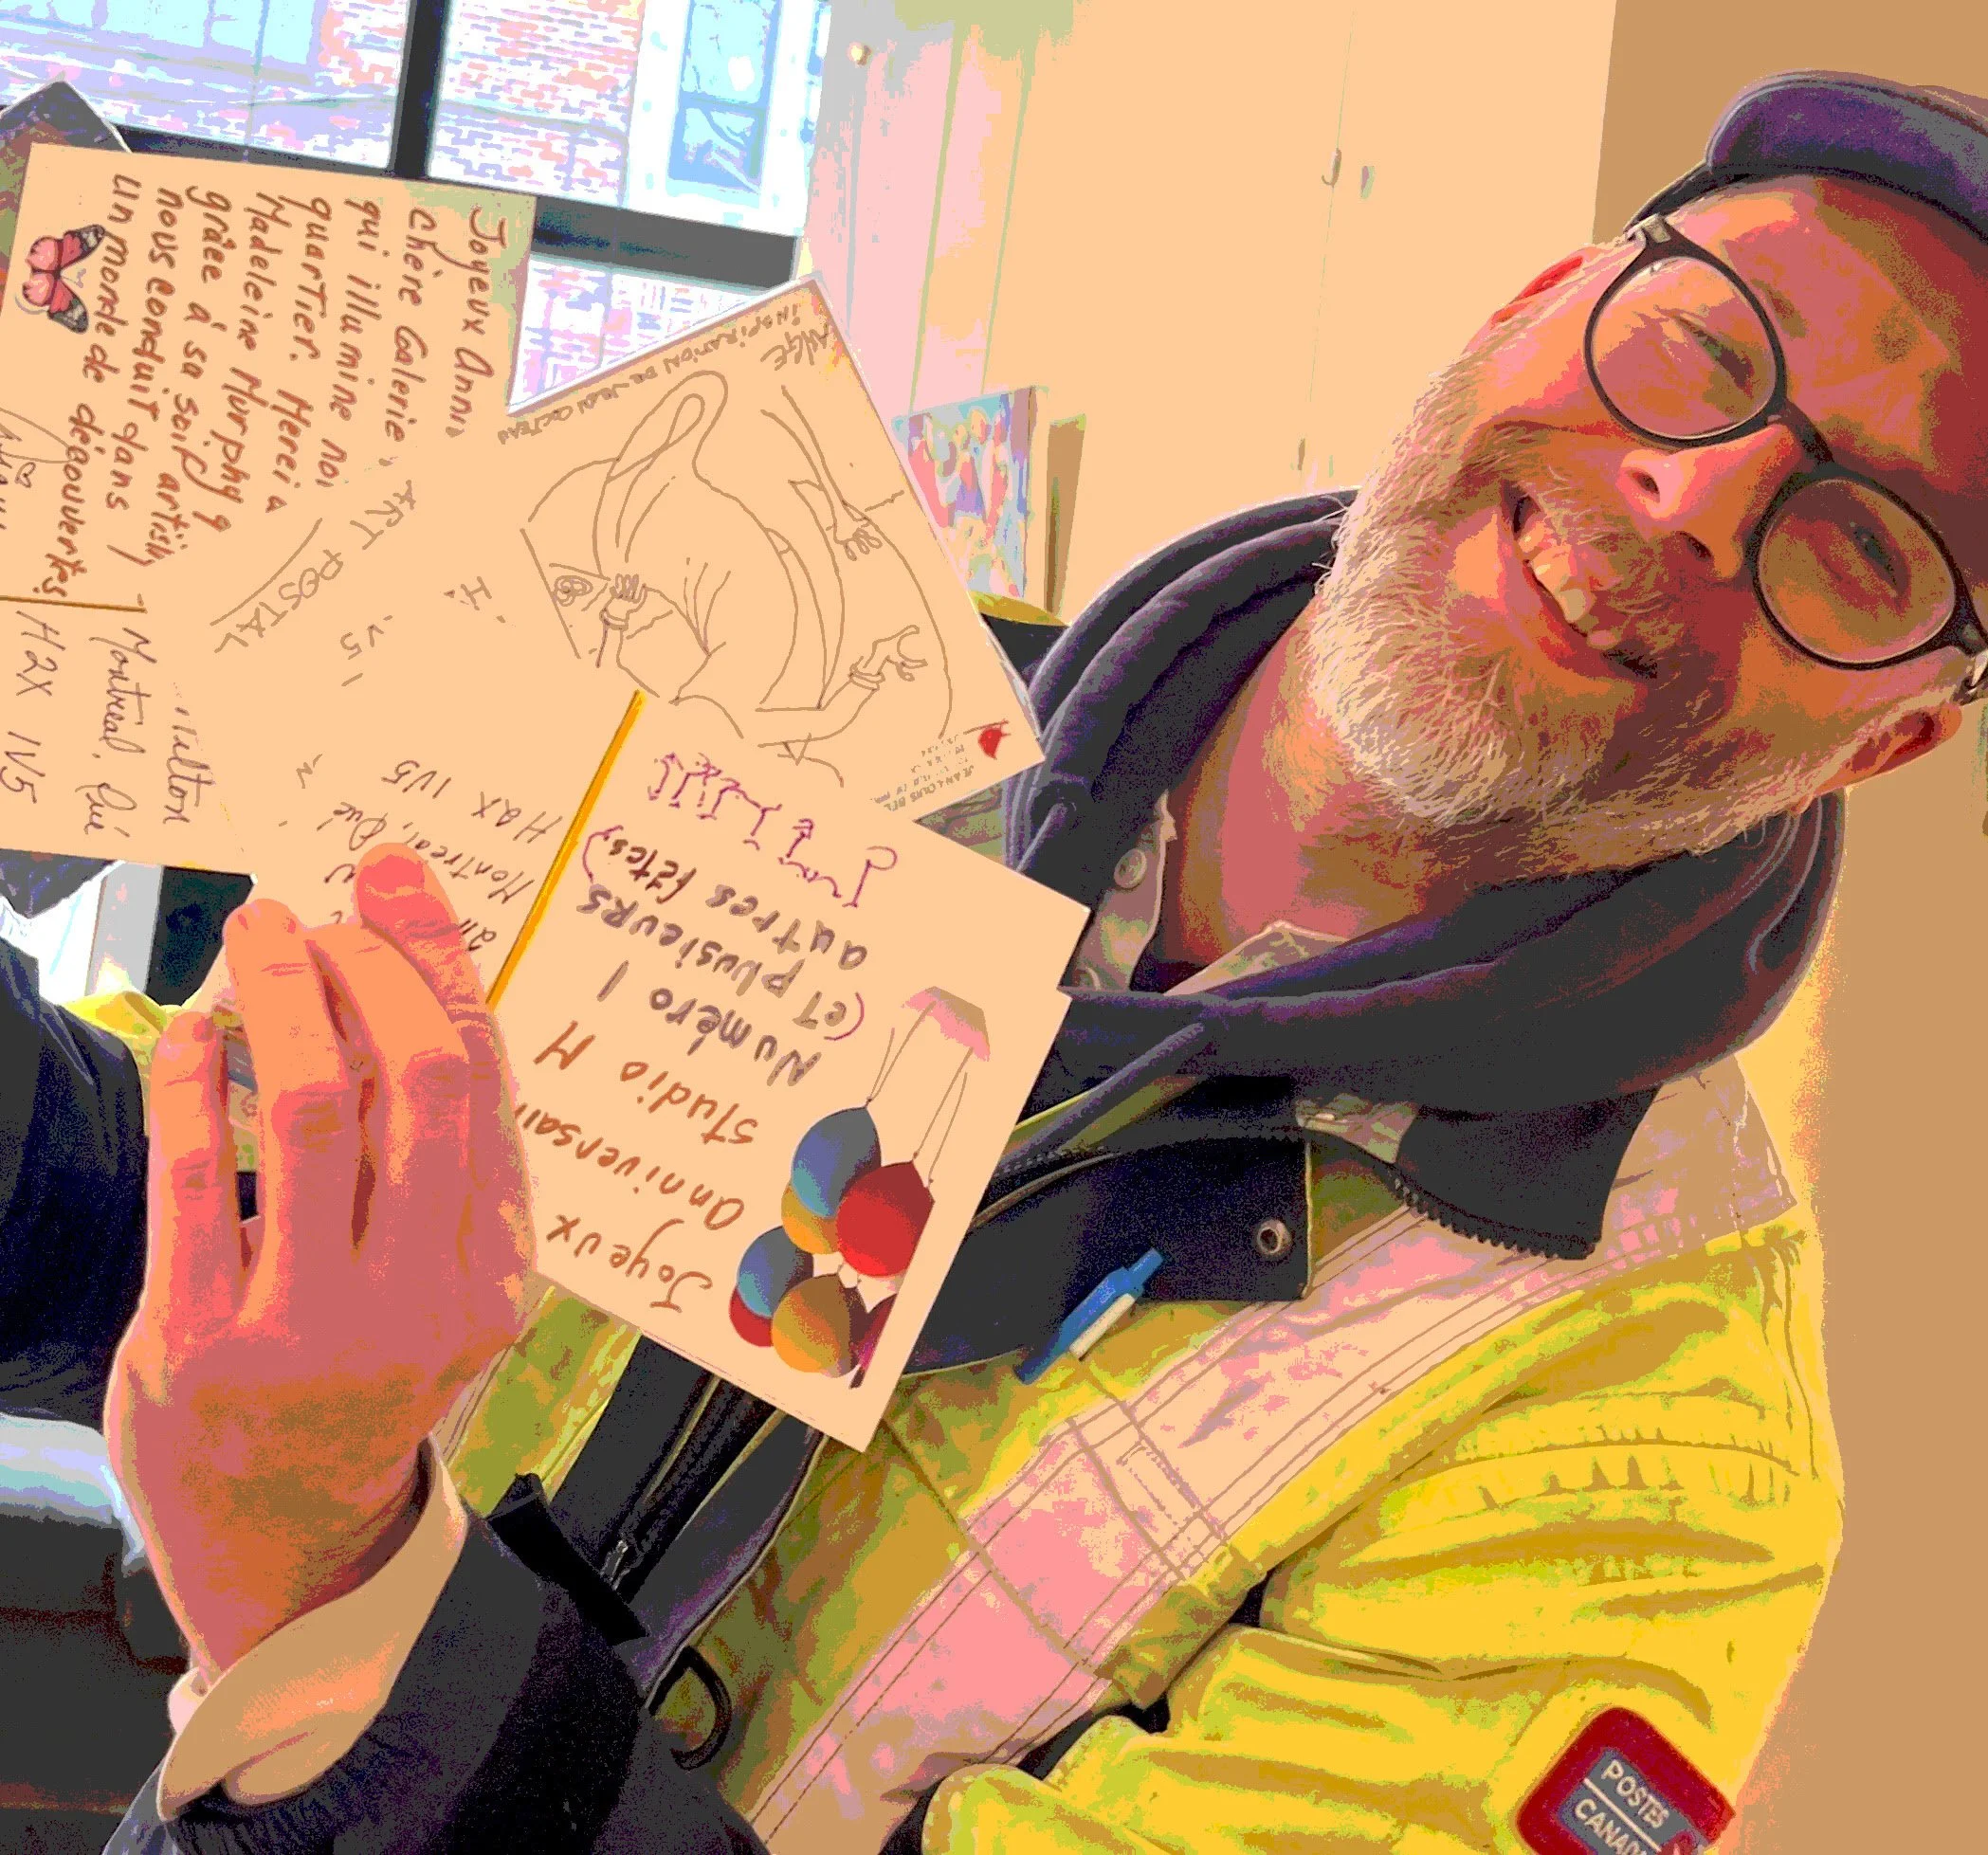 Joyeux Anni
Chère Galerie,
qui illumine no
quartier. Merci a
Madeleine Murphy q
grâce à sa soif artisti
nous conduit dans
un monde de découvertes
Milton
Montréal, Qué
H2X 1V5
ART POSTAL
V5
ANGE
INSPIRATION DE JEAN COCTEAU
Montréal, Qué
H2X 1V5
Joyeux
anniversai
studio M
Numéro 1
(et plusieurs
autres fêtes)
POSTES
CANADA